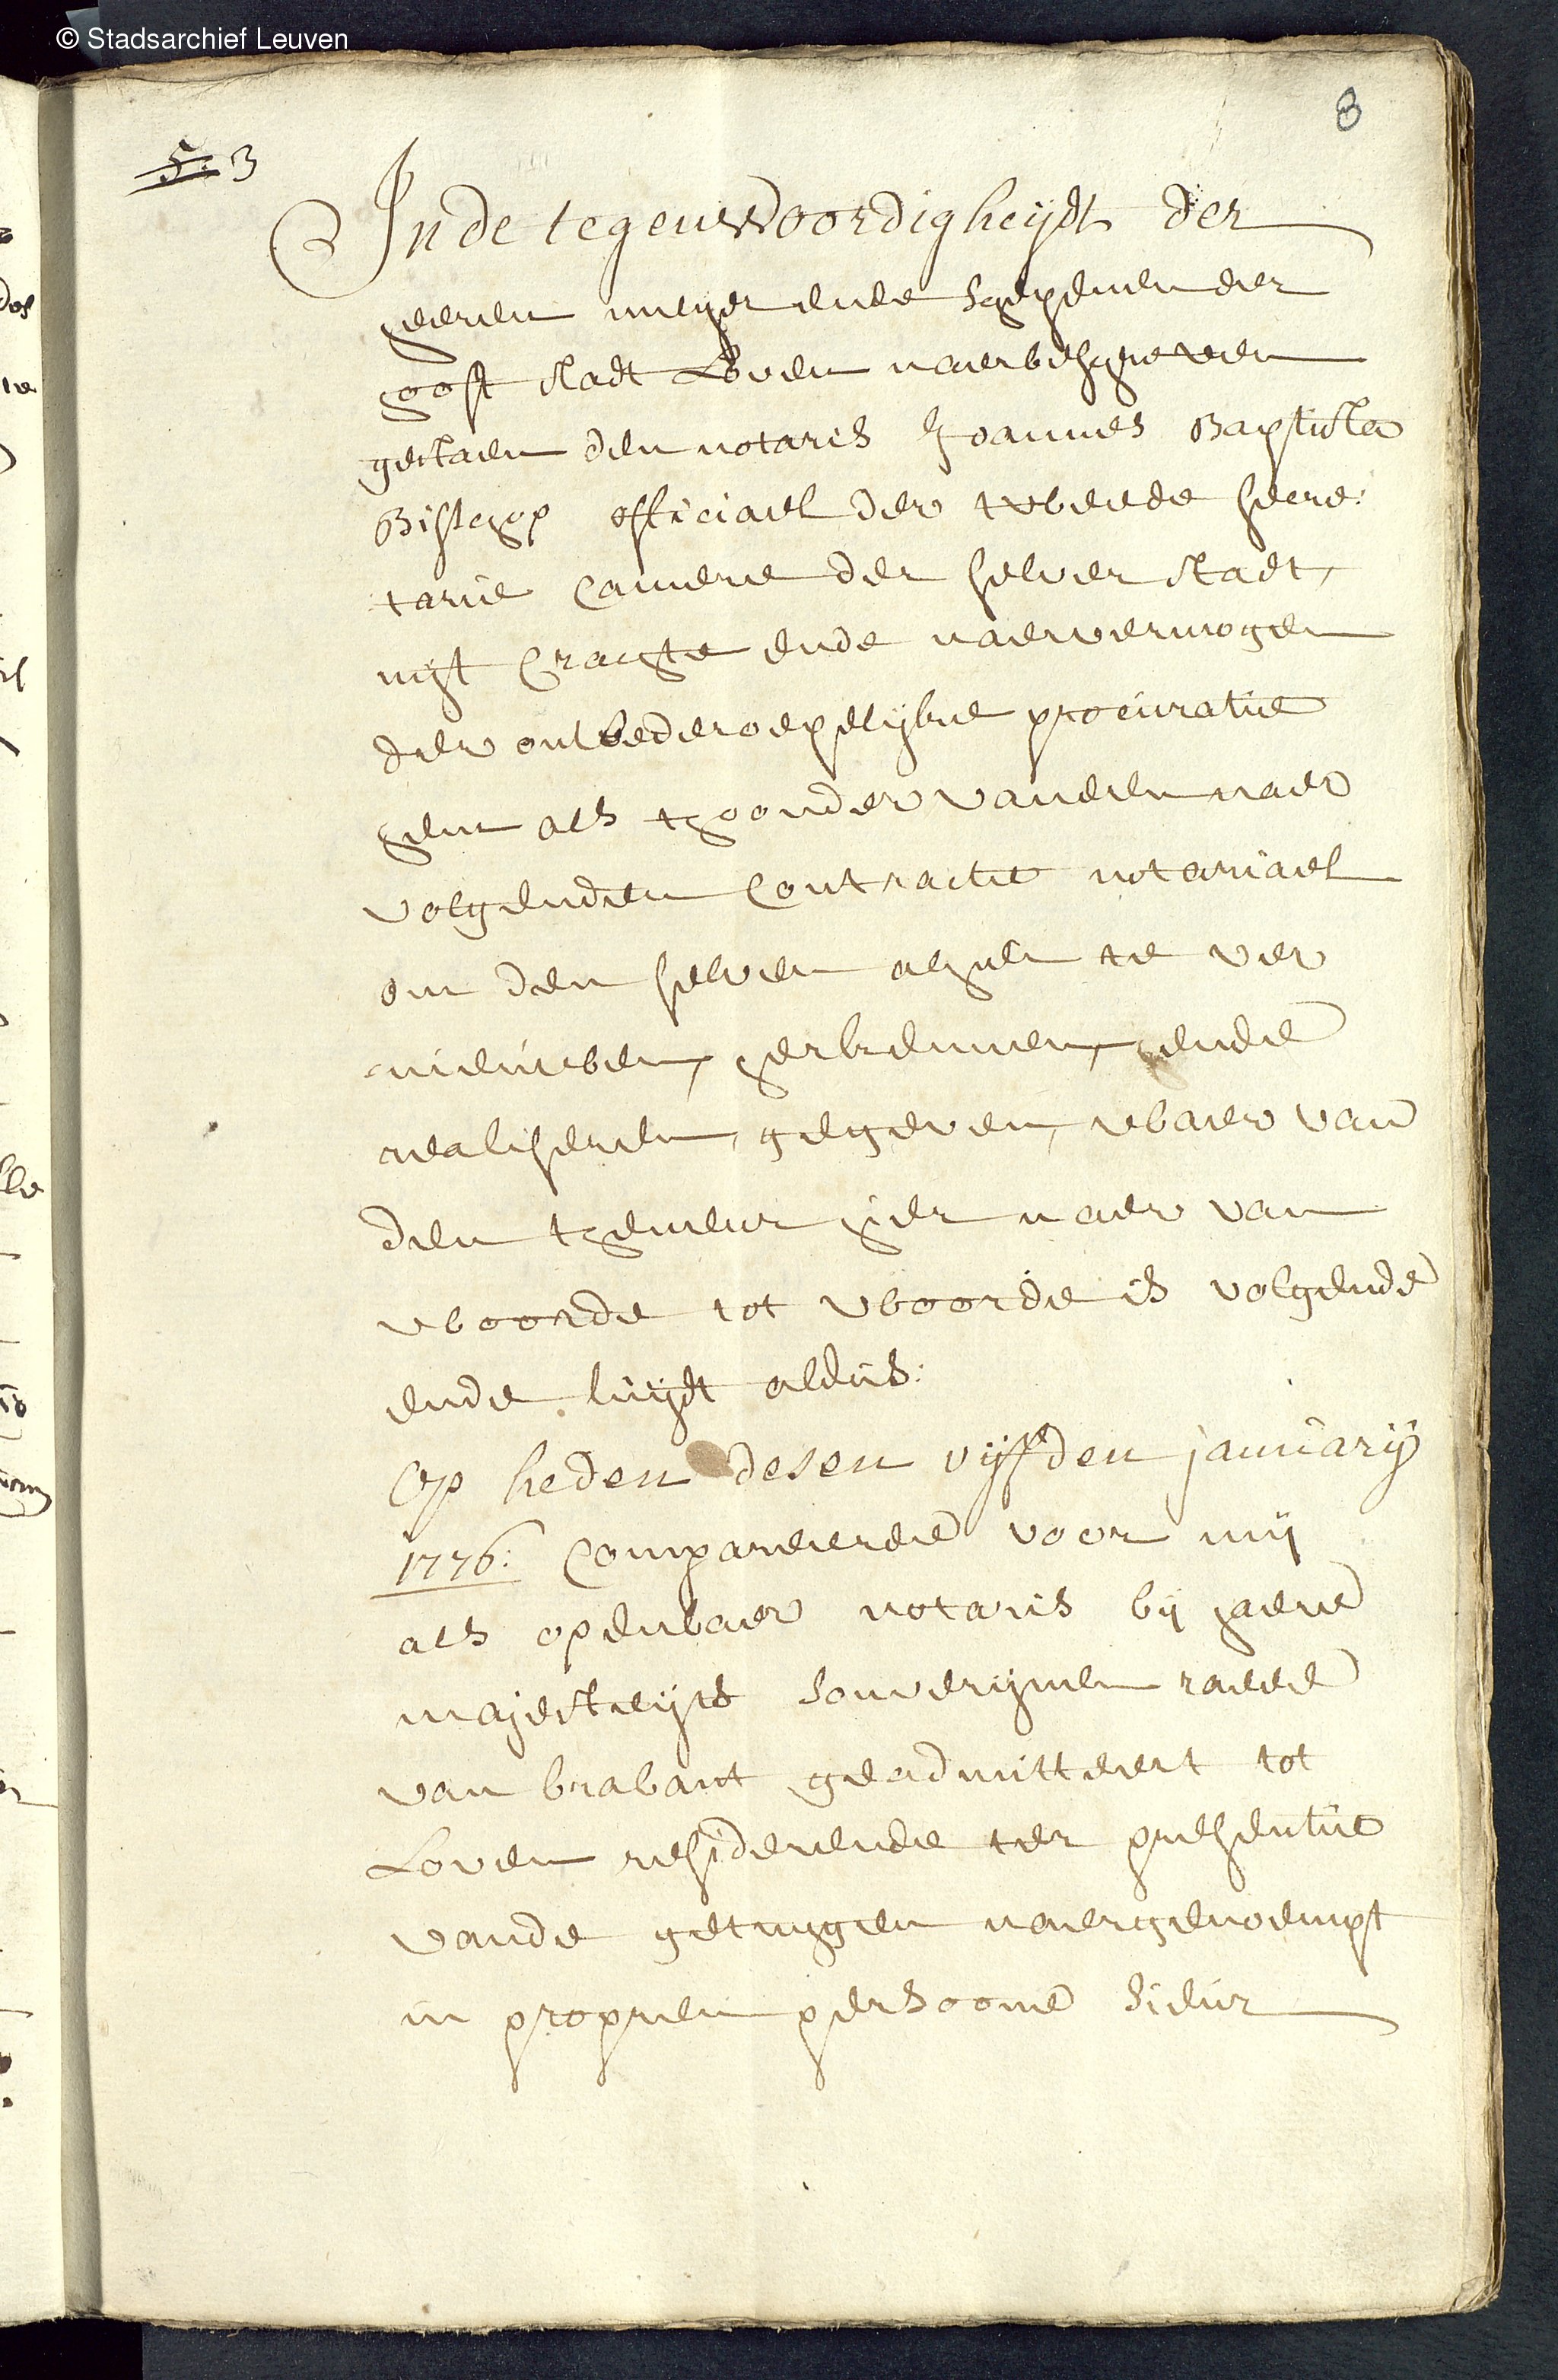 © Stadsarchief Leuven
8
5. 3
In de tegenwoordigheijdt der
heeren meijer ende schepenen der
hooft stadt Loven naerbeschreven
gestaen den notaris Joannes Baptista
Bisschop officiael der tweede secre:
tarie Camere der selver stadt,
uijt Crachte ende naervermogen
der onwederoepelijcke procuratie
hem als thoonder vanden naer
volgenden Contracte notariael
om den selven alhier te ver
nieuwen, herkennen, ende
realiseren, gegeven, waer van
den theneur hier naer van
woorde tot woorde is volgende
ende luijdt aldus:
Op heden desen vijfden januarij
1776: Compareerde voor mij
als openbaer notaris bij haere
majesteijts souverijnen raede
van brabant geadmitteert tot
Loven residerende ter presentie
vande getuijgen naergenoempt
in proprien persoone sieur